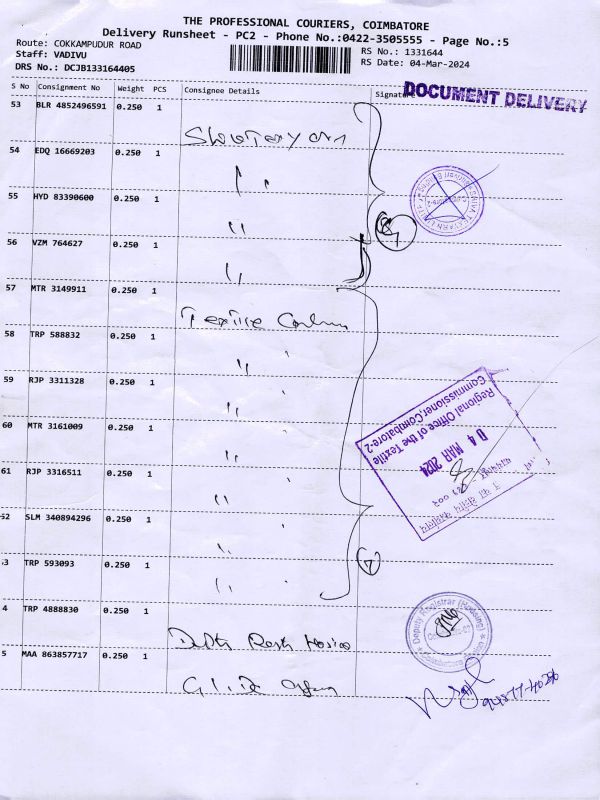 THE PROFESSIONAL COURIERS, COIMBATORE
Delivery Runsheet - PC2 - Phone No.:0422-3505555 - Page No.:5
Route: COKKAMPUDUR ROAD
Staff: VADIVU
DRS No.: DCJB133164405
RS No.: 1331644
RS Date: 04-Mar-2024
S No Consignment No Weight PCS Consignee Details Signature
DOCUMENT DELIVERY
53 BLR 4852496591 0.250 1
54 EDQ 16669203 0.250 1
55 HYD 83390600 0.250 1
56 VZM 764627 0.250 1
57 MTR 3149911 0.250 1
Textile
58 TRP 588832 0.250 1
59 RJP 3311328 0.250 1
60 MTR 3161009 0.250 1
61 RJP 3316511 0.250 1
52 SLM 340894296 0.250 1
53 TRP 593093 0.250 1
4 TRP 4888830 0.250 1
5 MAA 863857717 0.250 1
Regional Office of the Textile
Commissioner, Coimbatore-2
04 MAR 2024
Deputy Registrar (Housing)